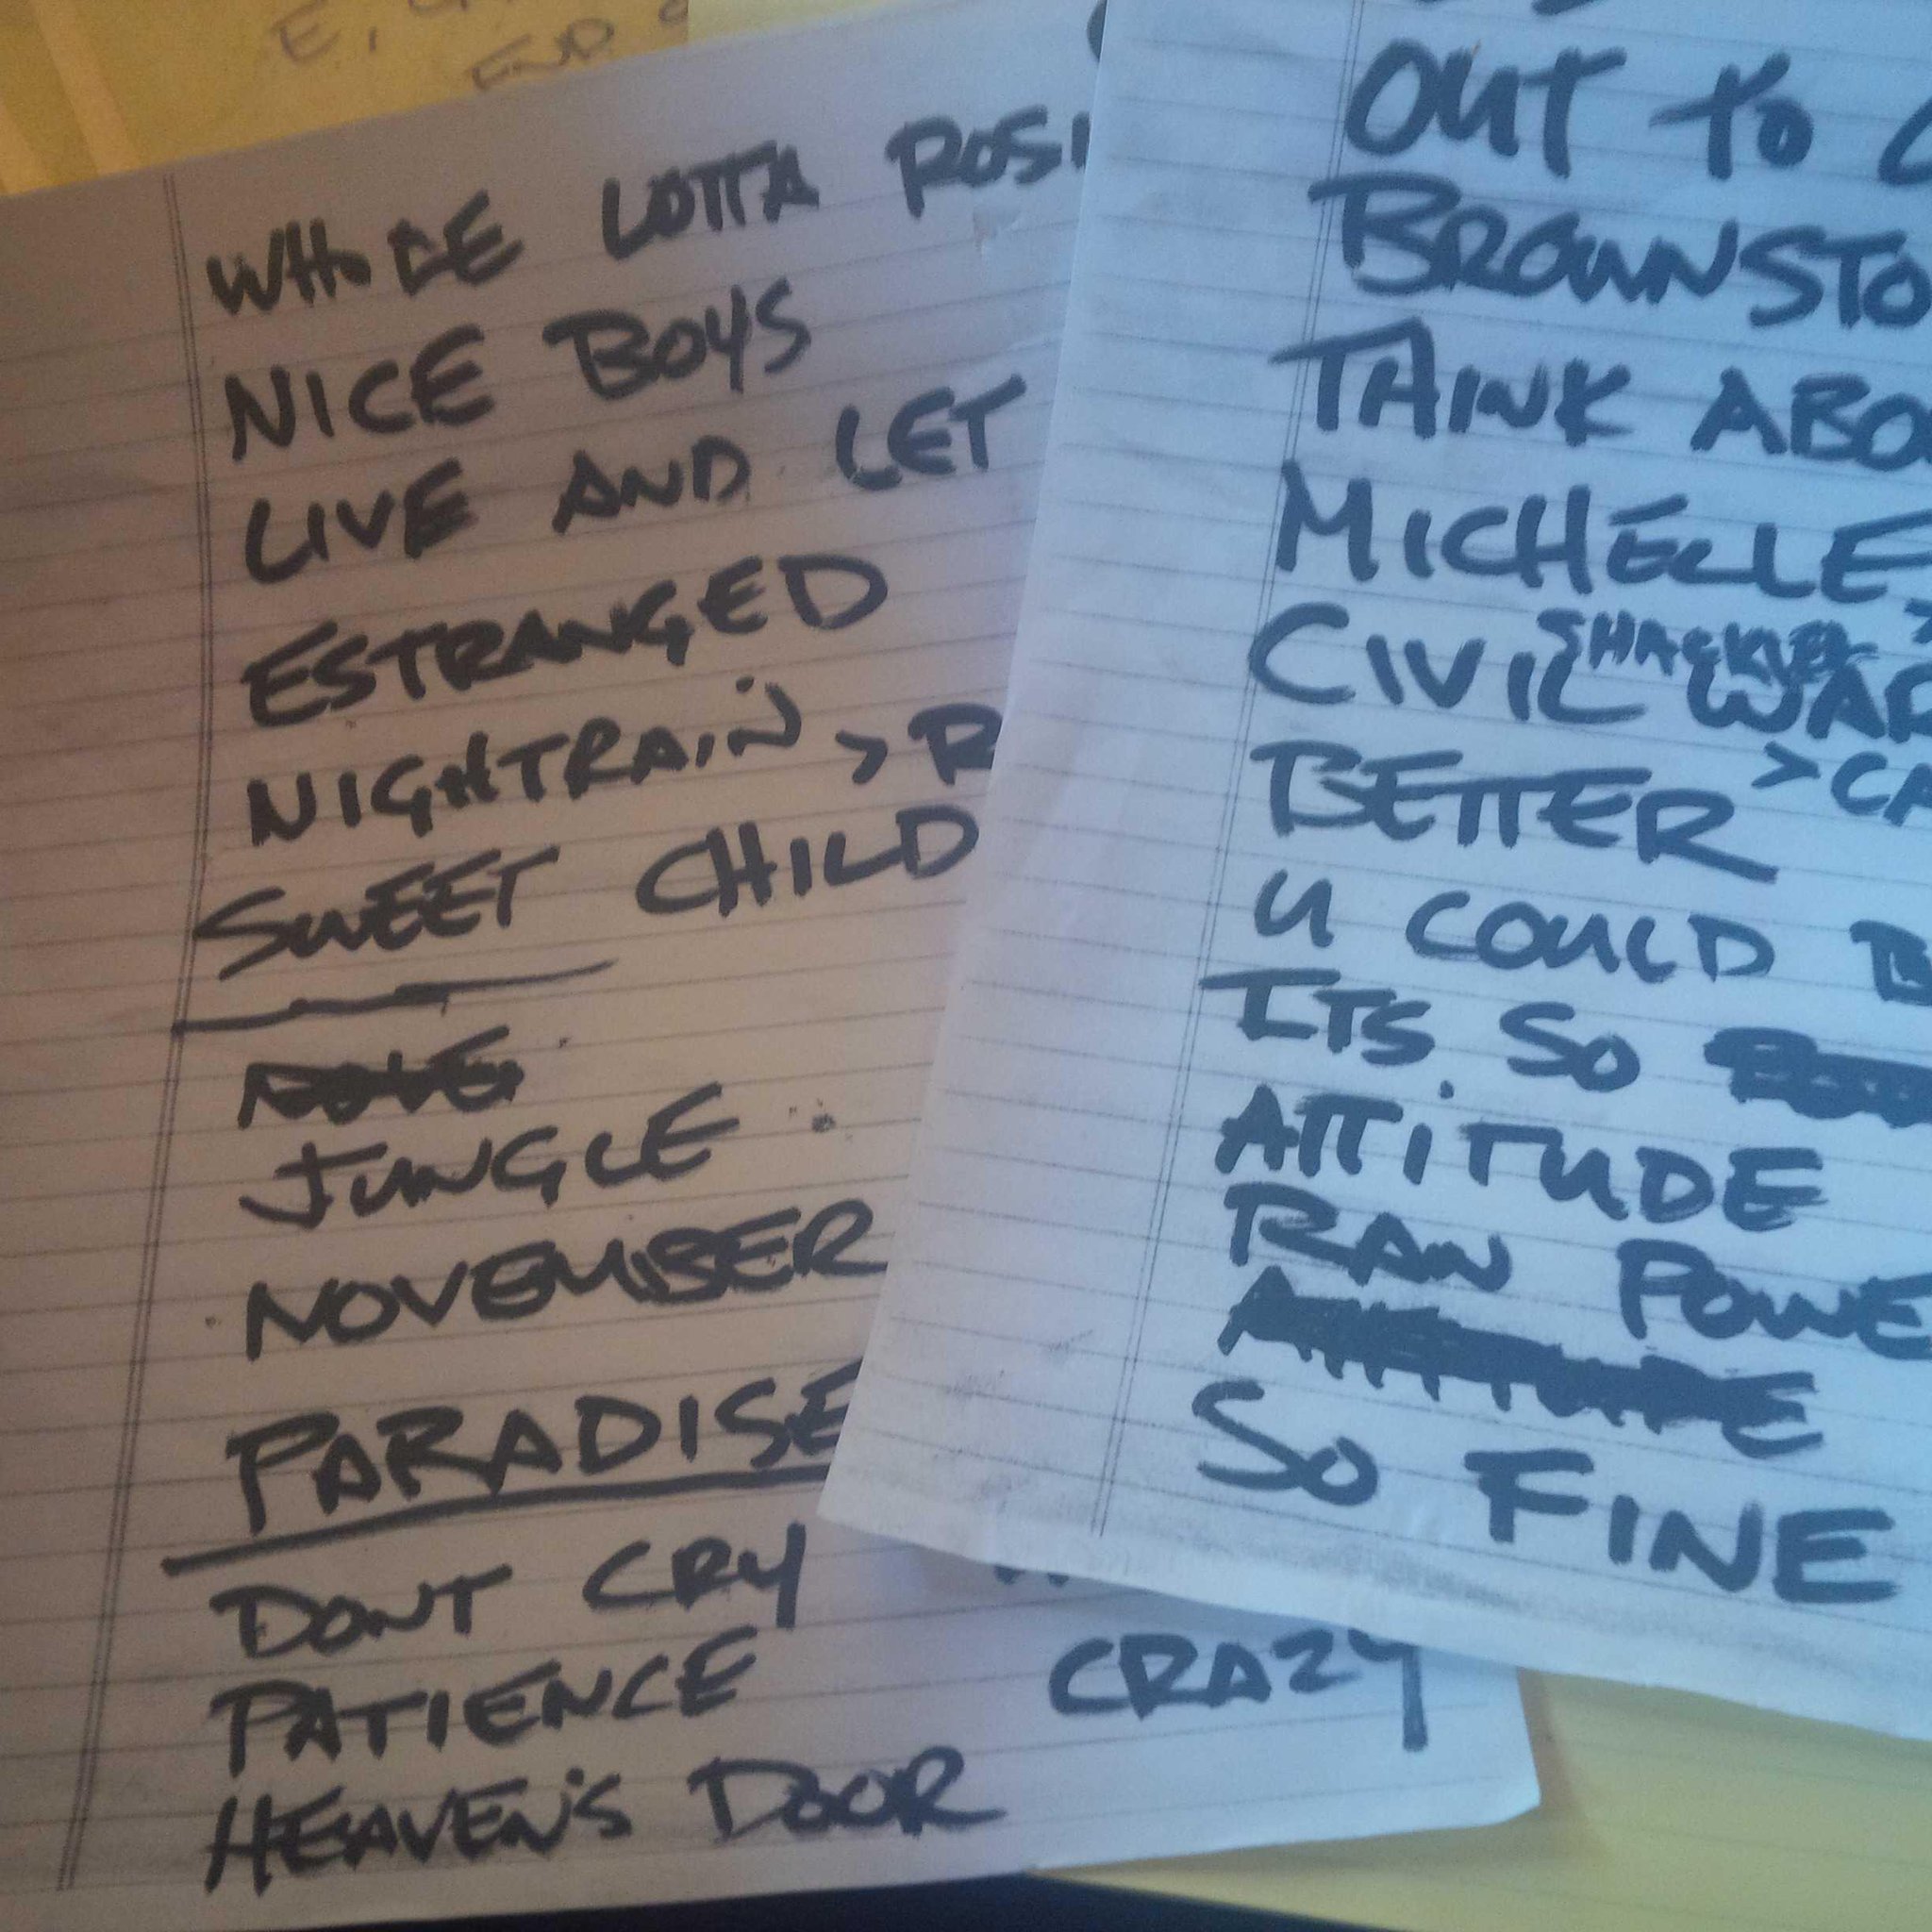 E,
END
WHOLE LOTTA ROSI
NICE BOYS
LIVE AND LET
ESTRANGED
NIGHTRAIN > R
SWEET CHILD
JUNGLE
NOVEMBER
PARADISE
DONT CRY
PATIENCE
CRAZY
HEAVEN'S DOOR
OUT TO
BROWNSTO
THINK ABO
MICHELLE
SHACKLER >
CIVIL WAR
> CA
BETTER
U COULD B
ITS SO
ATTITUDE
RAW POWE
ATTITUDE
SO FINE